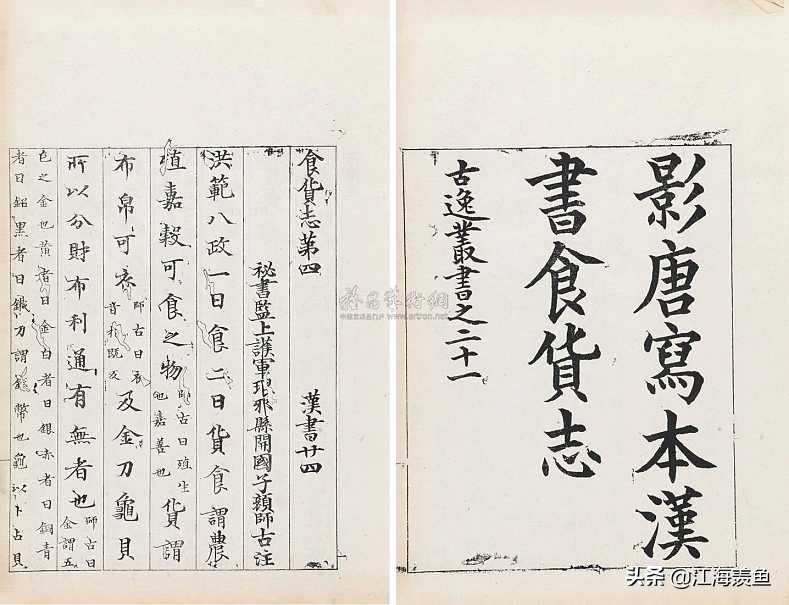 影唐寫本漢
書食貨志
古逸叢書之二十一
食貨志第四 漢書廿四
祕書監上護軍琅邪縣開國子顏師古注
洪範八政一曰食二曰貨食謂農
殖嘉穀可食之物師古曰殖生也嘉善也貨謂
布帛可衣師古曰衣音於既反及金刀龜貝
所以分財布利通有無者也師古曰金謂五
色之金也黃者曰金白者曰銀赤者曰銅青
者曰鉛黑者曰鐵刀謂錢幣也龜以卜占貝
头条 @江海羡鱼